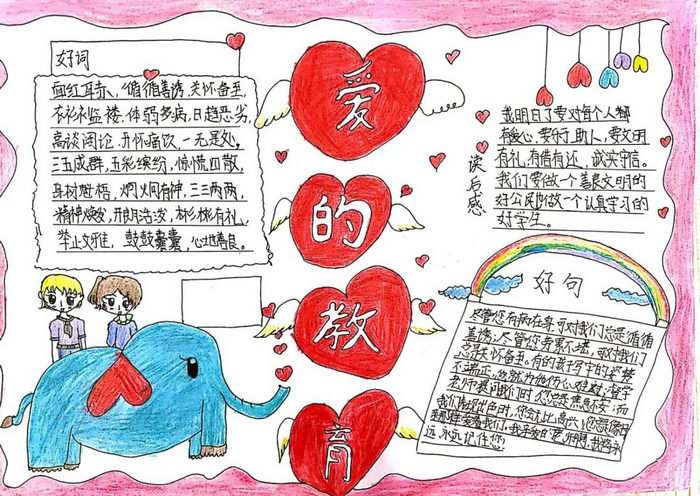 爱
的
教
育
好词
面红耳赤、循循善诱、关怀备至,
衣衫褴褛、体弱多病,日趋恶劣,
高谈阔论、开怀痛饮、一无是处,
三五成群,五彩缤纷,惊慌四散,
身材魁梧,炯炯有神,三三两两,
精神焕发,开朗活泼,彬彬有礼,
举止文雅,鼓鼓囊囊,心地善良。
读后感
我明白了要对每个人都
有爱心,要乐于助人,要文明
有礼,有借有还,诚实守信。
我们要做一个善良文明的
好公民做一个认真学习的
好学生。
好句
尽管您有病在身,可对我们总是循循
善诱,尽管您劳累不堪,可对我们
总是关怀备至。有的孩子写字的姿势
不端正,您就为他伤心难过,督学
老师提问我们时,您总是焦急不安;而
我们表现出色时,您就
远永远记住您!